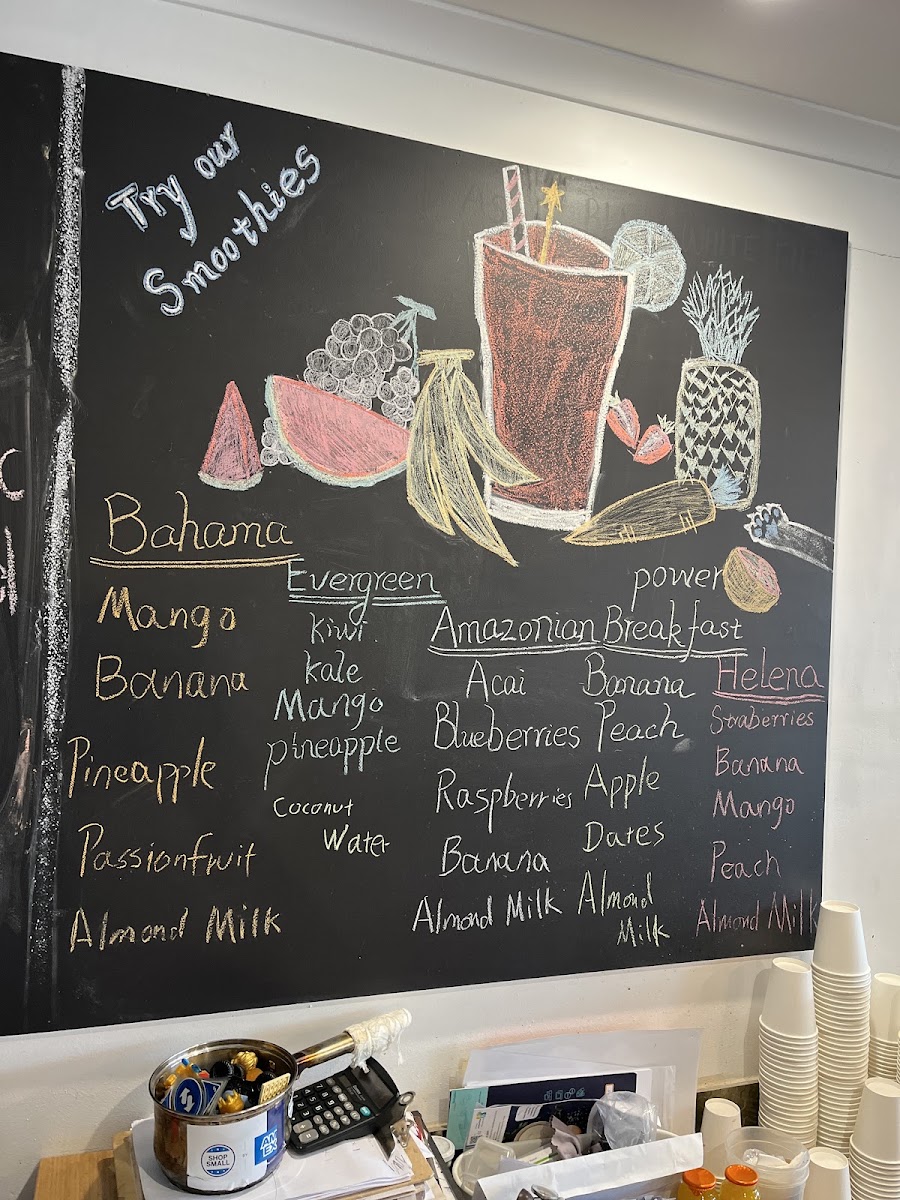 Try our
Smoothies
Bahama
Mango
Banana
Pineapple
Passionfruit
Almond Milk
Evergreen
Kiwi
kale
Mango
pineapple
Coconut
Water
Amazonian
Acai
Blueberries
Raspberries
Banana
Almond Milk
power
Breakfast
Banana
Peach
Apple
Dates
Almond
Milk
Helena
Straberries
Banana
Mango
Peach
Almond Milk
SHOP
SMALL